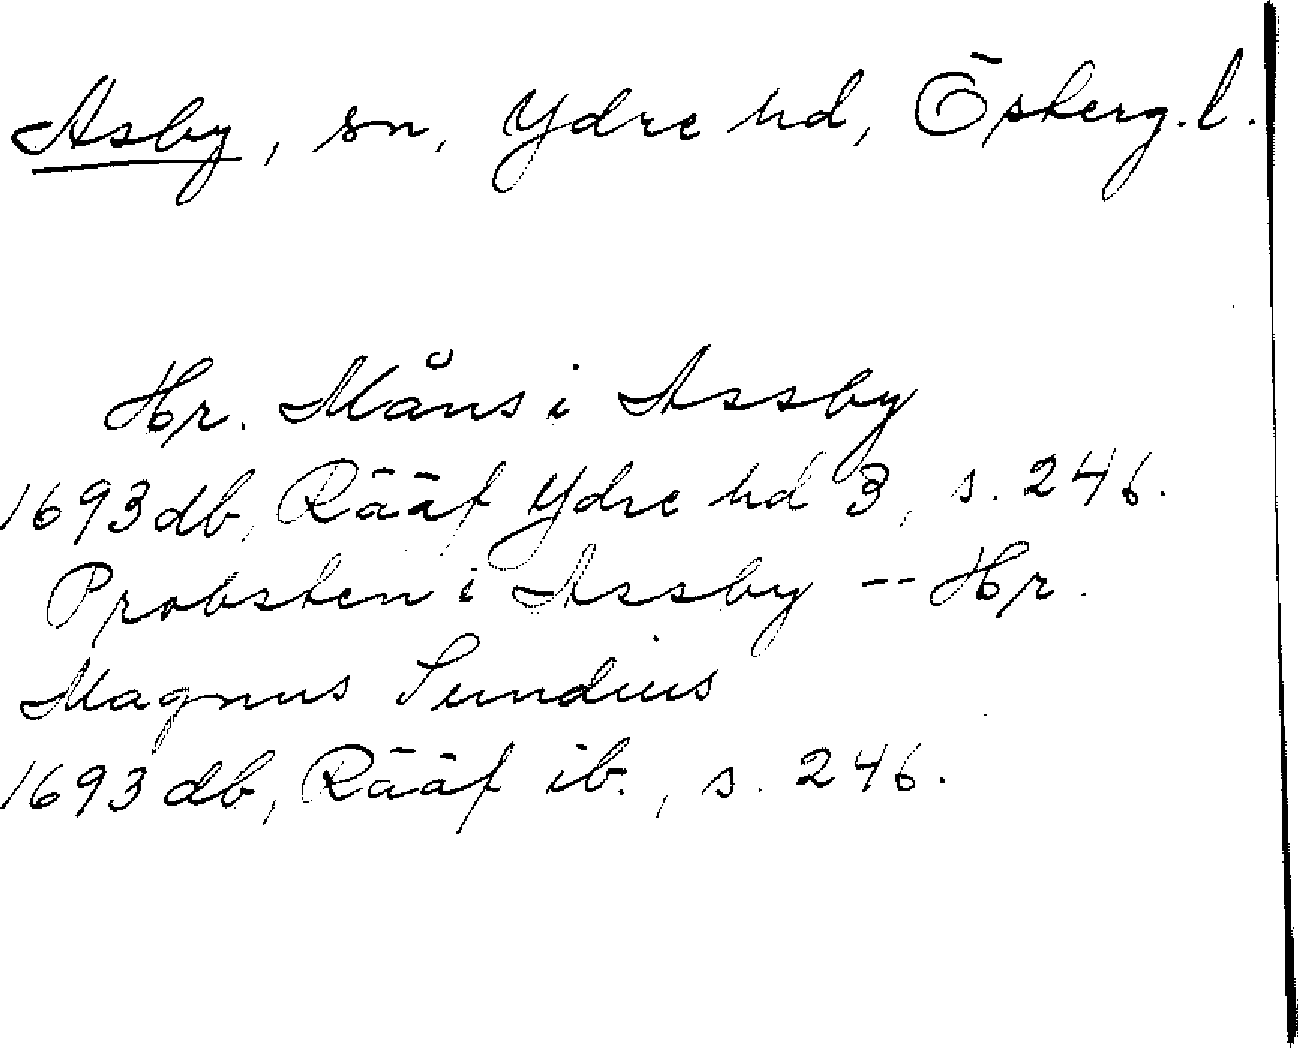 Asby, sn, Ydre hd, Östergl.
Hr. Måns i Assby
1693 db, Rääf Ydre hd 3, s. 246.
Probsten i Assby -- Hr.
Magnus Sundius
1693 db, Rääf ib., s. 246.